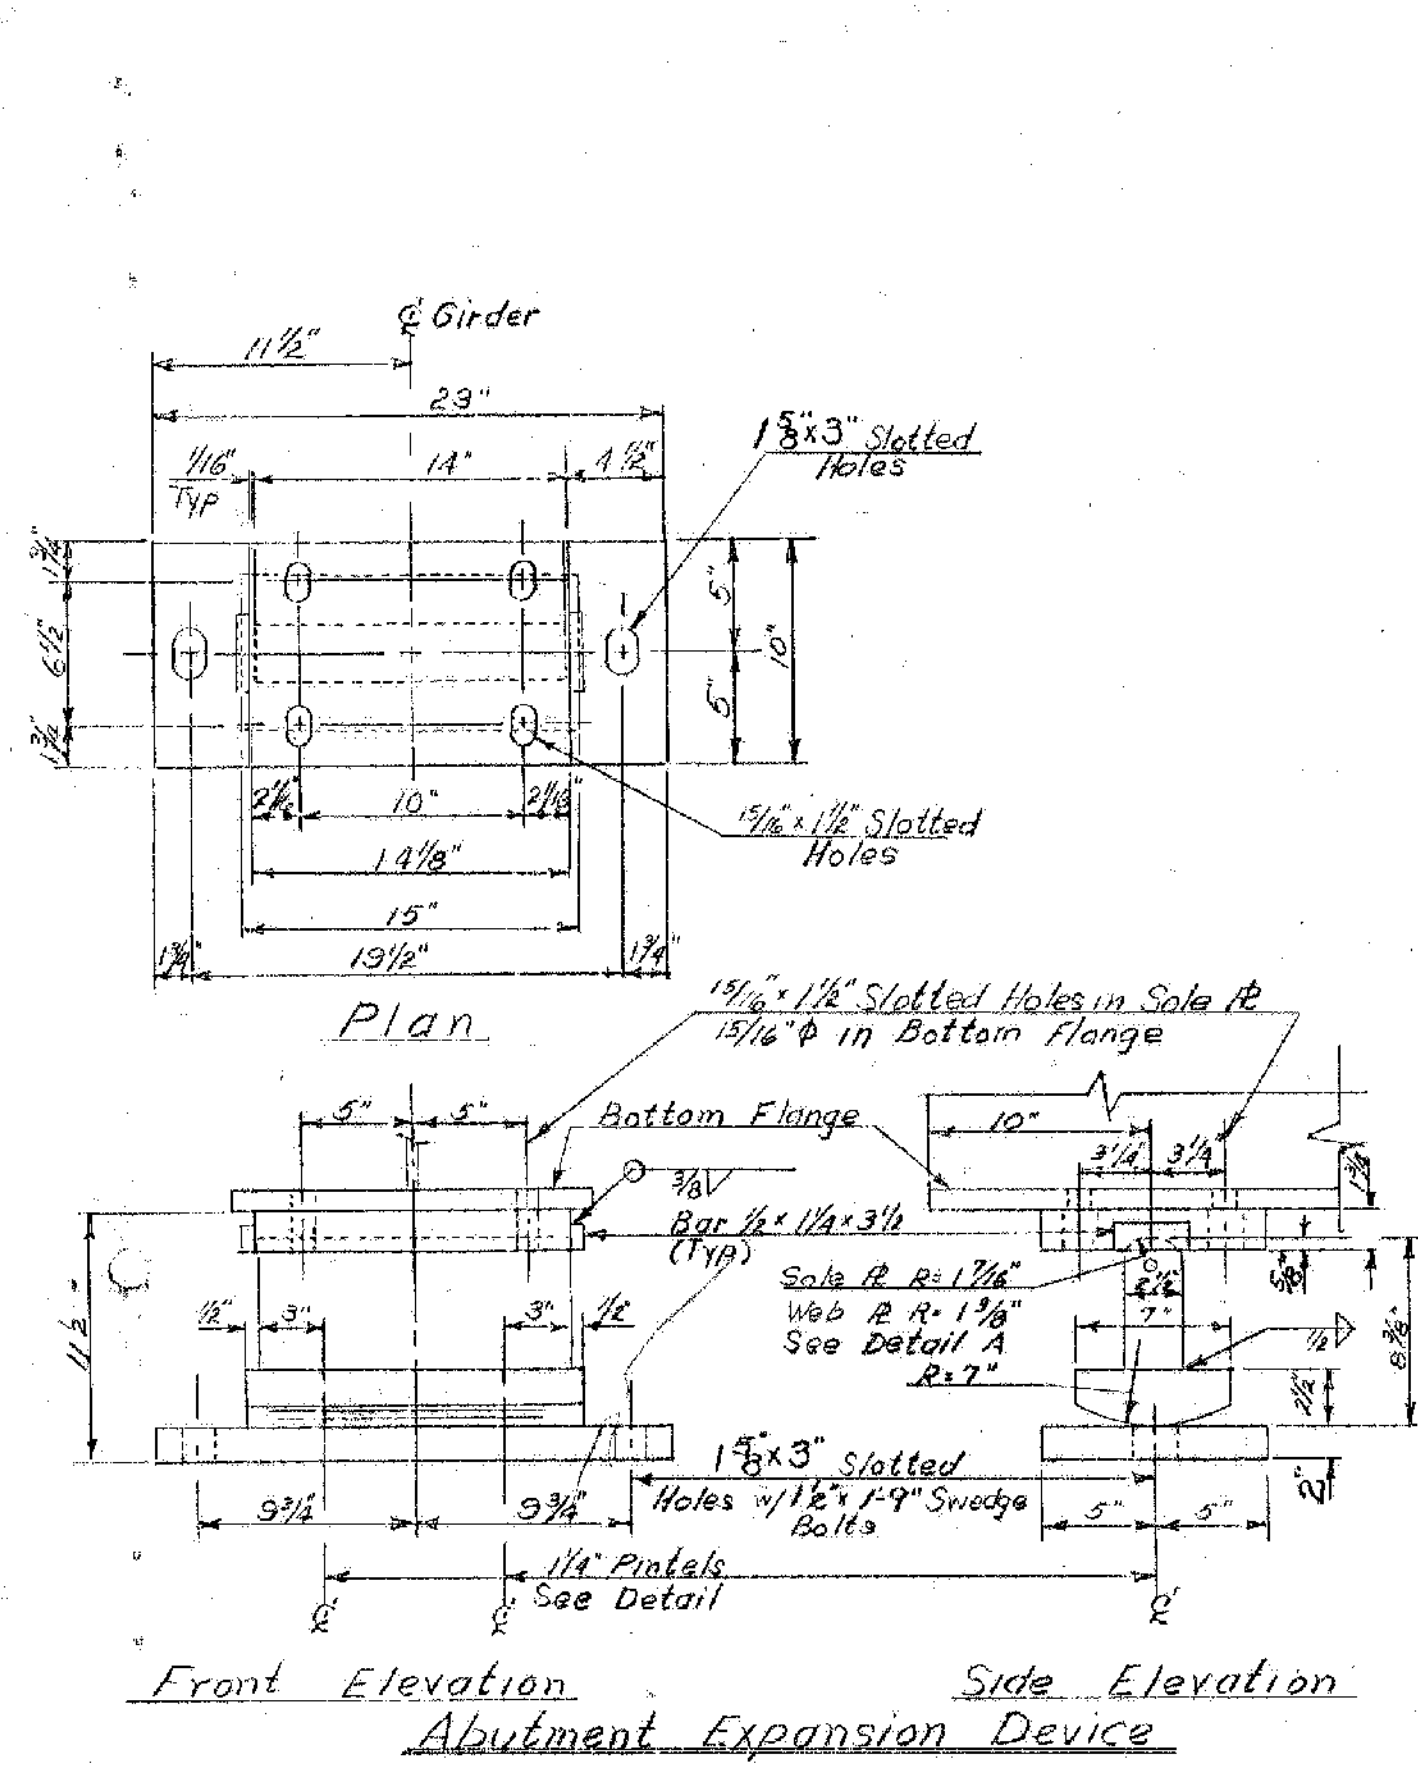 ℄ Girder
11 1/2"
23"
1 5/8" x 3" Slotted
Holes
1/16"
Typ
14"
4 1/2"
1 3/4"
6 1/2"
1 3/4"
5"
5"
10"
2 1/16"
10"
2 1/16"
15/16" x 1 1/2" Slotted
Holes
14 1/8"
15"
1 3/4"
19 1/2"
1 3/4"
Plan
15/16" x 1 1/2" Slotted Holes in Sole ℙL
15/16" ϕ in Bottom Flange
5"
5"
Bottom Flange
10"
3 1/4"
3 1/4"
1 3/4"
3/8
Bar 1/2 x 1 1/4 x 3 1/2
(Typ)
Sole PL R= 1 7/16"
Web PL R= 1 3/8"
See Detail A
R=7"
5/8"
2 1/2"
7"
1/2
8 3/8"
2 1/2"
2"
11 1/2"
1/2"
3"
3"
1/2"
1 5/8" x 3" Slotted
Holes w/ 1 1/2" x 1'-9" Swedge
Bolts
9 3/4"
9 3/4"
5"
5"
1 1/4" Pintels
See Detail
℄
℄
℄
Front Elevation
Side Elevation
Abutment Expansion Device